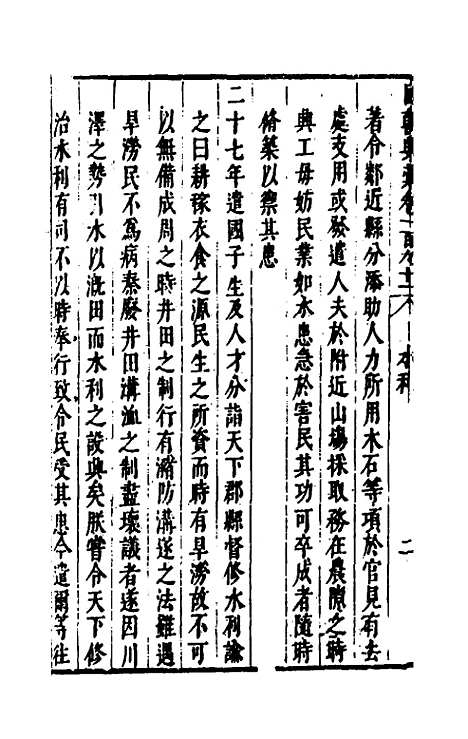 國朝典彙卷一百九十一 水利 二
著令鄰近縣分添助人力所用木石等項於官見有去
處支用或發遣人夫於附近山場採取務在農隙之時
興工毋妨民業如水患急於害民其功可卒成者隨時
脩築以禦其患
二十七年遣國子生及人才分詣天下郡縣督修水利諭
之曰耕稼衣食之源民生之所資而時有旱澇故不可
以無備成周之時井田之制行有瀦防溝遂之法雖遇
旱澇民不爲病秦廢井田溝洫之制盡壞議者遂因川
澤之勢引水以溉田而水利之說興矣朕嘗令天下修
治水利有司不以時奉行致令民受其患今遣爾等往